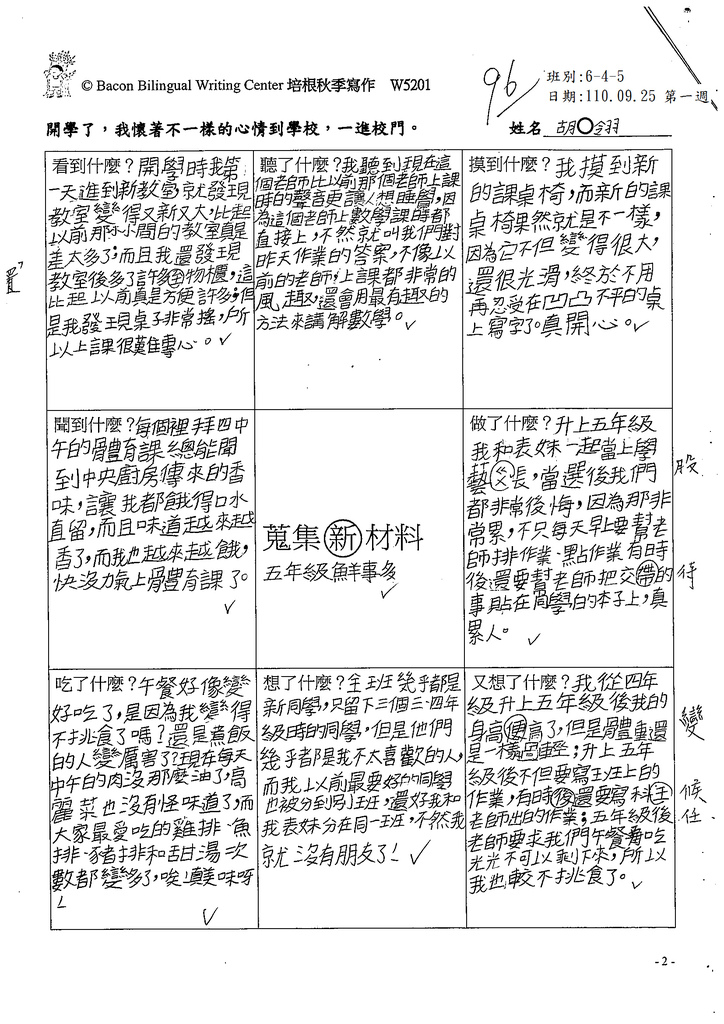 © Bacon Bilingual Writing Center 培根秋季寫作 W5201
96
班別:6-4-5
日期:110.09.25 第一週
開學了，我懷著不一樣的心情到學校，一進校門。
姓名 胡○翎
看到什麼？開學時我第
一天進到新教室，就發現
教室變得又新又大，比起
以前那小小間的教室真是
差太多了；而且我還發現
教室後多了許多物櫃，這
比起以前真是方便許多；但
是我發現桌子非常搖，所
以上課很難專心。
置
聽了什麼？我聽到現在這
個老師比以前那個老師上課
時的聲音更讓人想睡覺，因
為這個老師上數學課時都
直接上，不然就叫我們對
昨天作業的答案，不像以
前的老師，上課都非常的
風趣，還會用最有趣的
方法來講解數學。
摸到什麼？我摸到新
的課桌椅，而新的課
桌椅果然就是不一樣，
因為它不但變得很大，
還很光滑，終於不用
再忍受在凹凸不平的桌
上寫字了。真開心。
聞到什麼？每個禮拜四中
午的體育課總能聞
到中央廚房傳來的香
味，讓我都餓得口水
直留，而且味道越來越
香了，而我也越來越餓，
快沒力氣上體育課了。
蒐集新材料
五年級鮮事多
做了什麼？升上五年級
我和表妹一起當上學
藝長，當選後我們
都非常後悔，因為那非
常累，不只每天早上要幫老
師排作業、點作業有時
後還要幫老師把交帶的
事貼在同學的本子上，真
累人。
股
待
吃了什麼？午餐好像變
好吃了，是因為我變得
不挑食了嗎？還是煮飯
的人變厲害了？現在每天
中午的肉沒那麼油了，高
麗菜也沒有怪味道了，而
大家最愛吃的雞排、魚
排、豬排和甜湯次
數都變多了，唉！真美味呀
！
想了什麼？全班幾乎都是
新同學，只留下三個三、四年
級時的同學，但是他們
幾乎都是我不太喜歡的人，
而我以前最要好的同學
也被分到別班，還好我和
我表妹分在同一班，不然我
就沒有朋友了！
又想了什麼？我從四年
級升上五年級後我的
身高高了，但是體重還
是一樣輕；升上五年
級後不但要寫班上的
作業，有時後還要寫科王
老師出的作業；五年級後
老師要求我們午餐要吃
光光不可以剩下來，所以
我也較不挑食了。
變
候
任
- 2 -